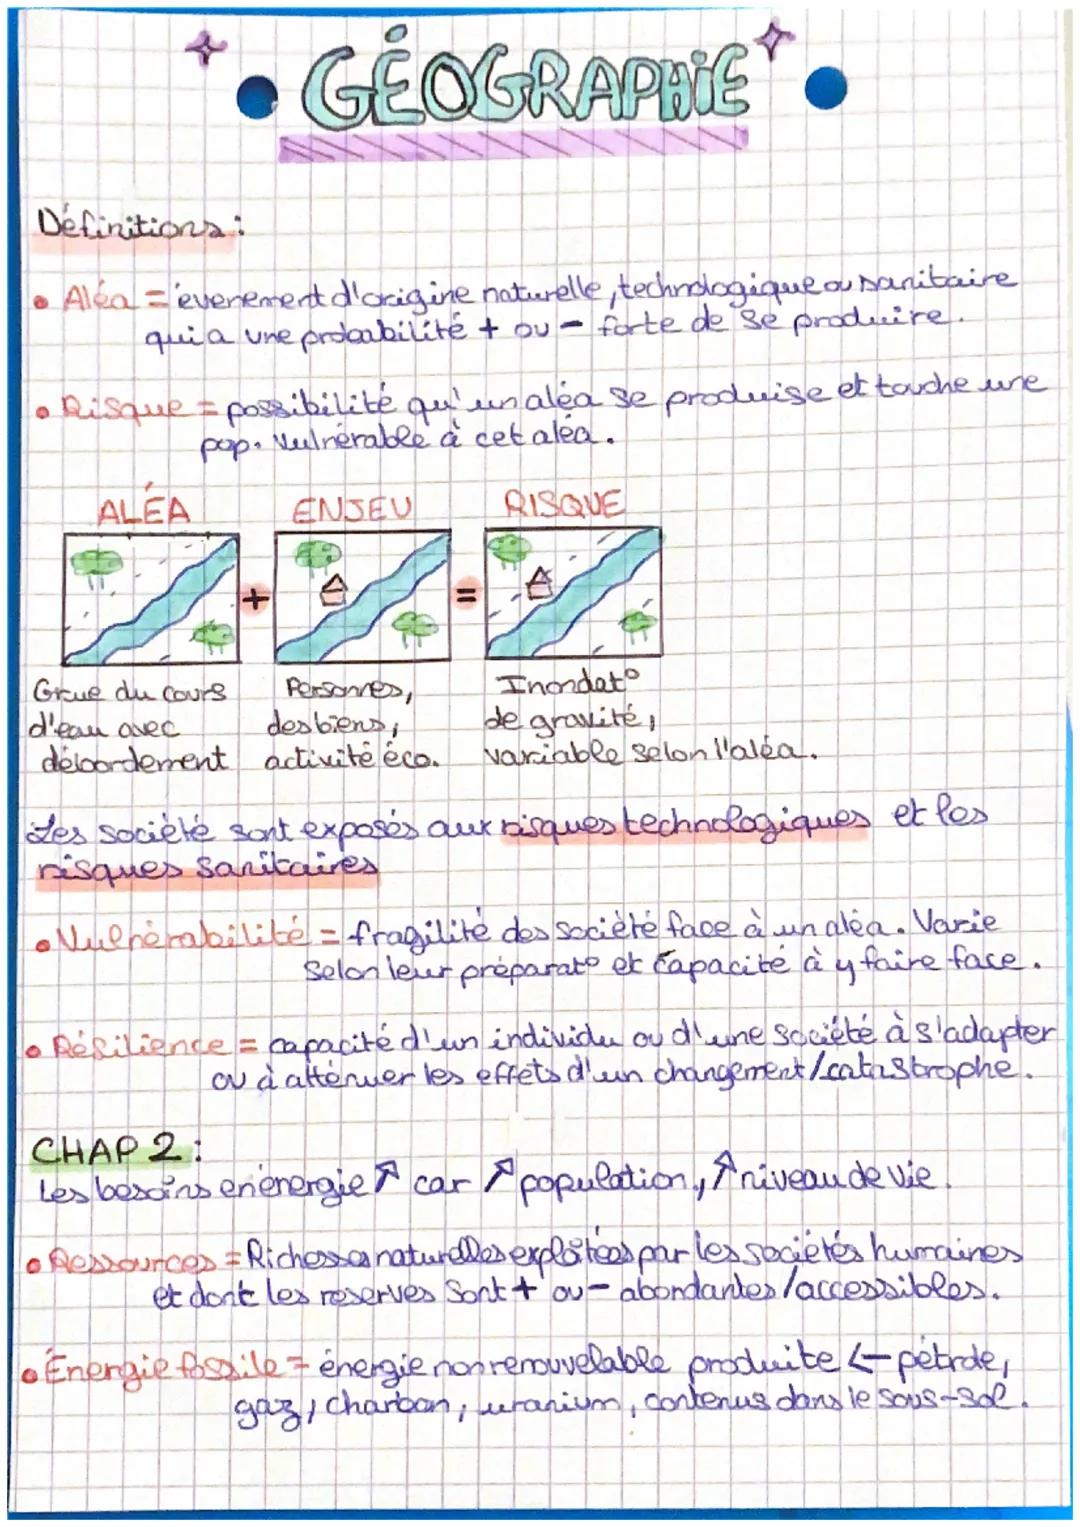 GÉOGRAPHIE
Définitions :
• Aléa = évenement d'origine naturelle, technologique ou sanitaire
qui a une probabilité + ou - forte de se produire.
• Risque = possibilité qu'un aléa se produise et touche une
pop. vulnérable à cet aléa.
ALÉA ENJEU RISQUE
+ =
Grue du cours Personnes, Inondat°
d'eau avec des biens, de gravité,
débordement activité éco. variable selon l'aléa.
Les société sont exposés aux risques technologiques et les
risques sanitaires
• Vulnérabilité = fragilité des société face à un aléa. Varie
selon leur préparat° et capacité à y faire face.
• Résilience = capacité d'un individu ou d'une société à s'adapter
ou à atténuer les effets d'un changement/catastrophe.
CHAP 2 :
Les besoins en énergie ↗ car ↗ population, ↗ niveau de vie.
• Ressources = Richesses naturelles exploitées par les sociétés humaines
et dont les reserves sont + ou - abondantes/accessibles.
• Énergie fossile = énergie non renouvelable produite ← pétrole,
gaz, charbon, uranium, contenus dans le sous-sol.